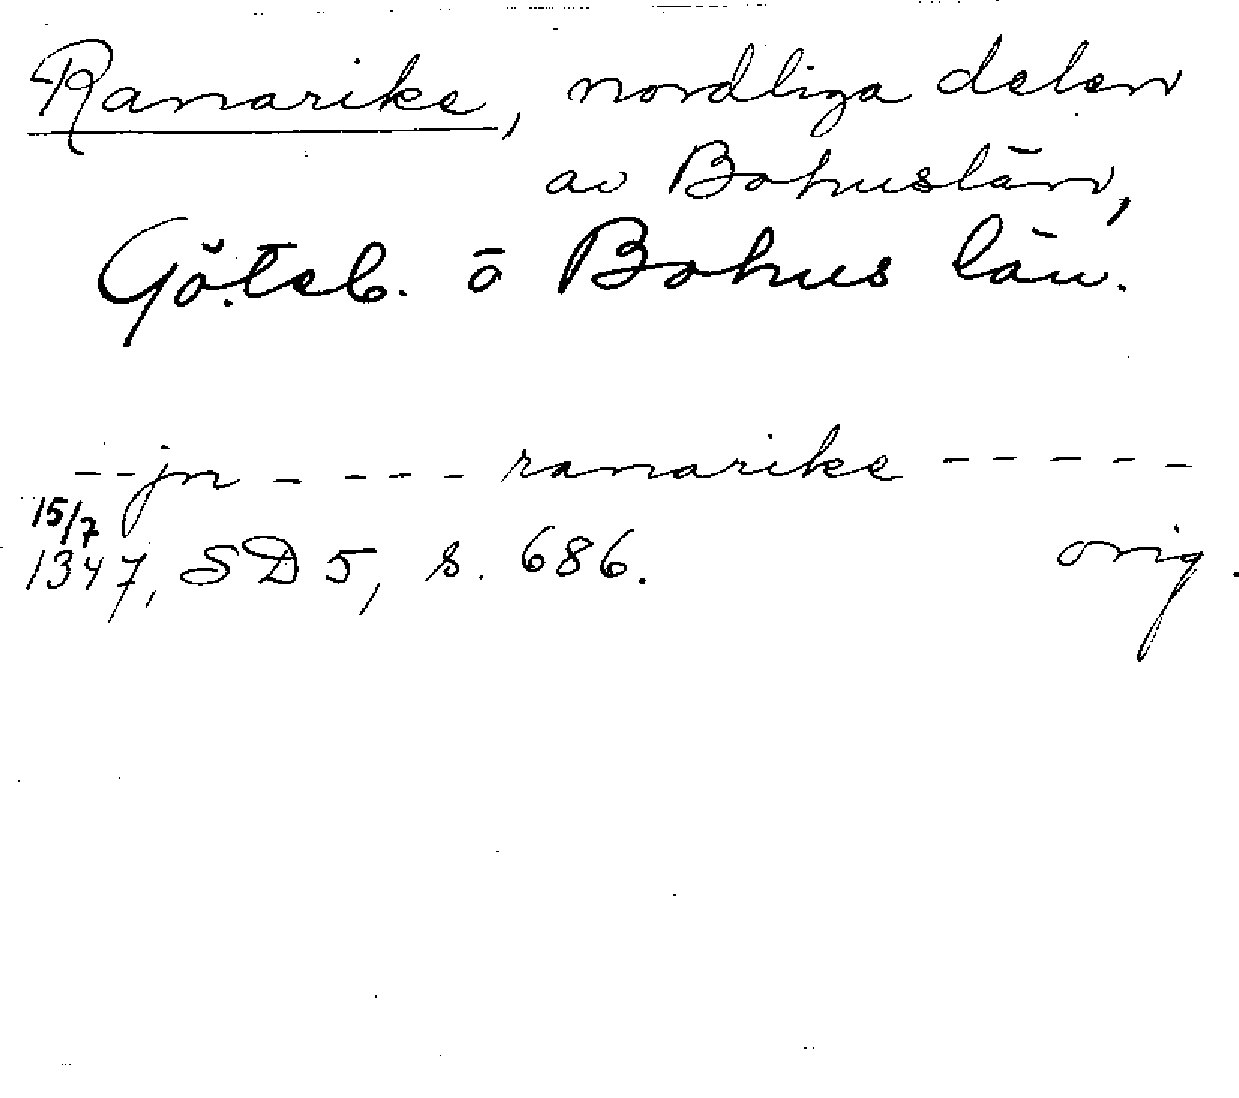 Ranarike, nordliga delen
av Bohuslän,
Göteb. o Bohus län.
-- jn - --- ranarike -----
15/7
1347, SD 5, s. 686. orig.